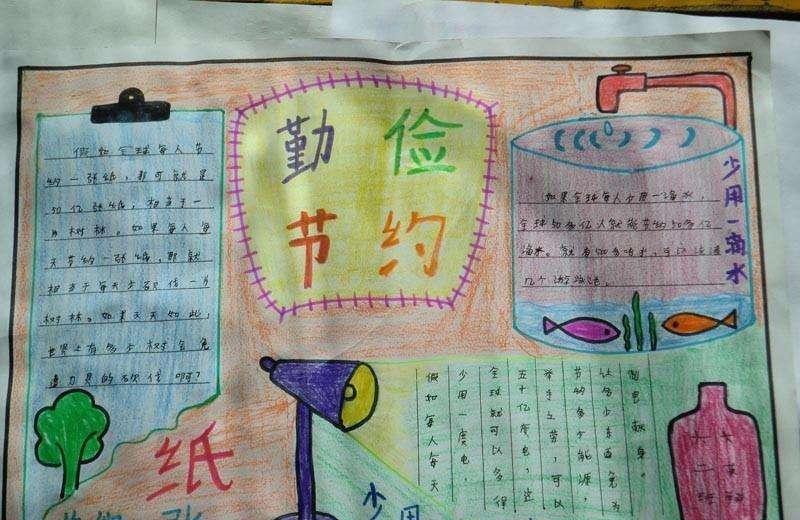 假如全球每人节
约一张纸，那可就是
50亿张纸，相当于一
片树林。如果每人每
天节约一张纸，那就
相当于每天少砍伐一片
树林。如果天天如此，
世界上有多少树会免
遭刀具的砍伐啊？
勤俭
节约
如果全球每人少用一滴水，
全球50多亿人就能节约50多亿
滴水。
几个游泳池。
少用一滴水
假如每人每天
少用一度电，
全球就可以多得
五十亿度电，这
举手之劳，可以
节约多少能源，
让多少东西免为
用电献身。
纸
少用